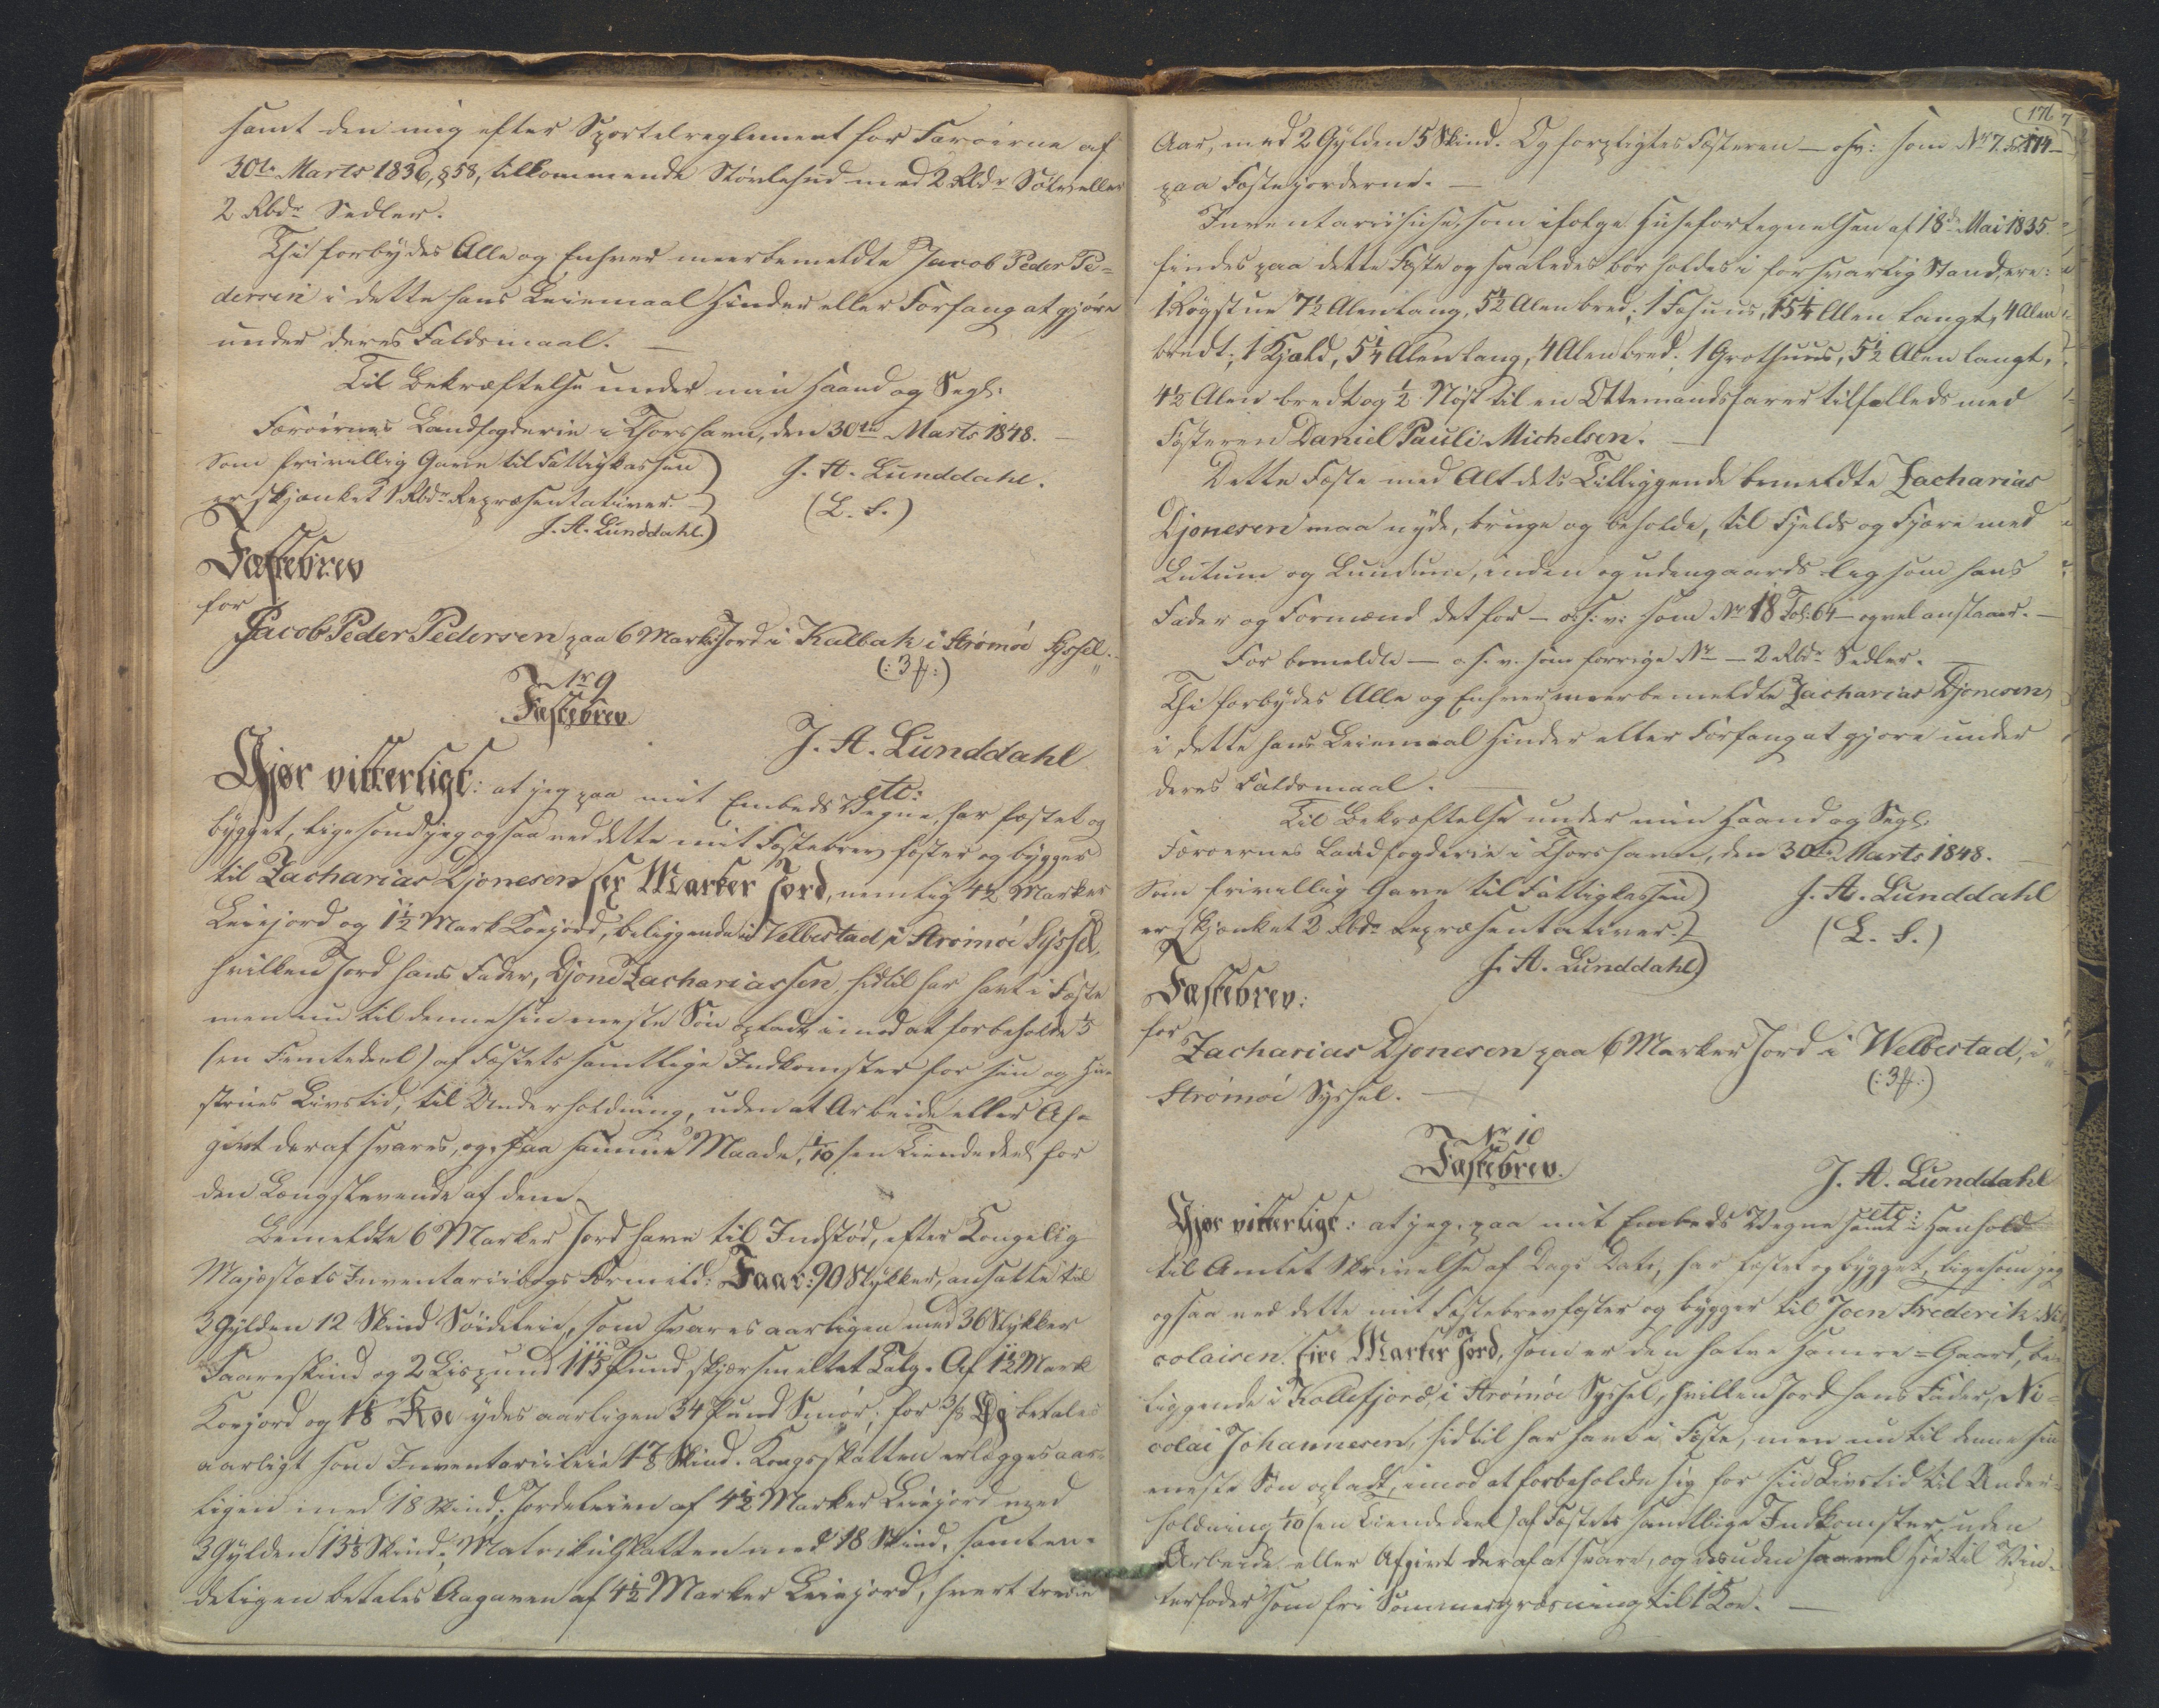 samt den mig efter Sportelreglement for Færøerne af
30te Marts 1836, §58, tilkommende Støvlehud med 2 Rbdr Sølv eller
2 Rbdr Sedler.
Thi forbydes Alle og Enhver meerbemeldte Jacob Peder Pe=
dersen i dette hans Leiemaal Hinder eller Forfang at gjøre
under deres Faldsmaal. —
Til Bekræftelse under min Haand og Segl.
Færøernes Landfogderie i Thorshavn, den 30te Marts 1848. —
Som frivillig Gave til Fattigkassen
er skjænket 1 Rbdr Repræsentativer.
J. A. Lunddahl.
J. A. Lunddahl.
(L. S.)
Fæstebrev
for
Jacob Peder Pedersen paa 6 Mark: Jord i Kalbak i Strømøe Syssel.
(: 3 ß :)
Nr 9
Fæstebrev
J. A. Lunddahl
etc:
Gjør vitterligt: at jeg paa mit Embeds Vegne, har fæstet og
bygget, ligesom jeg ogsaa ved dette mit Fæstebrev fæster og bygger
til Zacharias Djonesen sex Marker Jord, nemlig 4½ Marker
Leiejord og 1½ Mark Koejord, beliggende i Velbestad i Strømøe Syssel,
hvilken Jord hans Fader, Djone Zachariassen, hidtil har havt i Fæste
men nu til denne sin ældste Søn opladt imod at forbeholde 1/5
(en Femtedeel) af Fæstets samtlige Indkomster for sin og Hu=
struens Livstid, til Underholdning, uden at Arbeide eller Af=
givt deraf svares, og, paa samme Maade, 1/10 (en Tiendedeel) for
den Længstlevende af dem.
Bemeldte 6 Marker Jord have til Indstød, efter Kongelig
Majestæts Inventariibogs Formeld: Faar: 90 Stykker, ansatte til
3 Gylden 12 Skind Søideleie, som svares aarligen med 36 Stykker
Faareskind og 2 Lispund 11⅕ Pund skjærsmeltet Talg. Af 1½ Mark
Koejord og 1⅛ Koe ydes aarligen 34 Pund Smør; for 3/8 Qv betales
aarligt som Inventariileie 1⅞ Skind. Kongsskatten erlægges aar=
ligen med 18 Skind; Jordeleien af 4½ Marker Leiejord med
3 Gylden 13⅛ Skind, Matrikulskatten med 18 Skind, samt en=
deligen betales Aagaven af 4½ Marker Leiejord, hvert tredie
176
Aar, med 2 Gylden 5 Skind. Og forpligtes Fæsteren — osv: som Nr 7. Fol 174 —
paa Fæstejorderne. —
Inventariihuse, som ifølge Husefortegnelsen af 18de Mai 1835.
findes paa dette Fæste og saaledes bør holdes i forsvarlig Stand, ere:
1 Røgstue 7½ Alen lang, 5½ Alen bred; 1 Fæhuus, 15¼ Alen langt, 4 Alen
bredt; 1 Kjald, 5¼ Alen lang, 4 Alen bred; 1 Grothuus, 5½ Alen langt,
4½ Alen bredt og ½ Nøst til en Ottemandsfarer tilfælleds med
Fæsteren Daniel Pauli Michelsen. —
Dette Fæste med Alt dets Tilliggende bemeldte Zacharias
Djonesen maa nyde, bruge og beholde, til Fjelds og Fjære med
Lutum og Lundum, inden og udengaards lig som hans
Fader og Formænd det før — o: s: v: som Nr 18 Fol: 64 — og vel anstaaer. —
For bemeldte — o. s. v. som forrige Nr — 2 Rbdr Sedler. —
Thi forbydes Alle og Enhver meerbemeldte Zacharias Djonesen
i dette hans Leiemaal Hinder eller Forfang at gjøre under
deres Faldsmaal. —
Til Bekræftelse under min Haand og Segl.
Færøernes Landfogderie i Thorshavn, den 30te Marts 1848. —
Som frivillig Gave til Fattigkassen
er skjænket 2 Rbdr Repræsentativer.
J. A. Lunddahl
J. A. Lunddahl
(L. S.)
Fæstebrev:
for
Zacharias Djonesen paa 6 Marker Jord i Welbestad, i
Strømøe Syssel. —
(: 3 ß :)
Nr 10
Fæstebrev.
J. A. Lunddahl
etc:
Gjør vitterligt: at jeg, paa mit Embeds Vegne samt i Henhold
til Amtets Skrivelse af Dags Dato, har fæstet og bygget, ligesom jeg
ogsaa ved dette mit Fæstebrev fæster og bygger til Joen Frederik Ni=
colaisen fire Marker Jord, som er den halve Hamre=Gaard, be=
liggende i Kollefjord i Strømøe Syssel, hvilken Jord hans Fader, Ni=
colai Johannesen, hidtil har havt i Fæste, men nu til denne sin
eneste Søn opladt, imod at forbeholde sig for sin Livstid til Under=
holdning 1/10 (en Tiendedeel) af Fæstets samtlige Indkomster, uden
Arbeide eller Afgivt deraf at svare, og desuden saavel Høe til Vin=
terfoder som fri Sommergræsning til 1 Koe. —